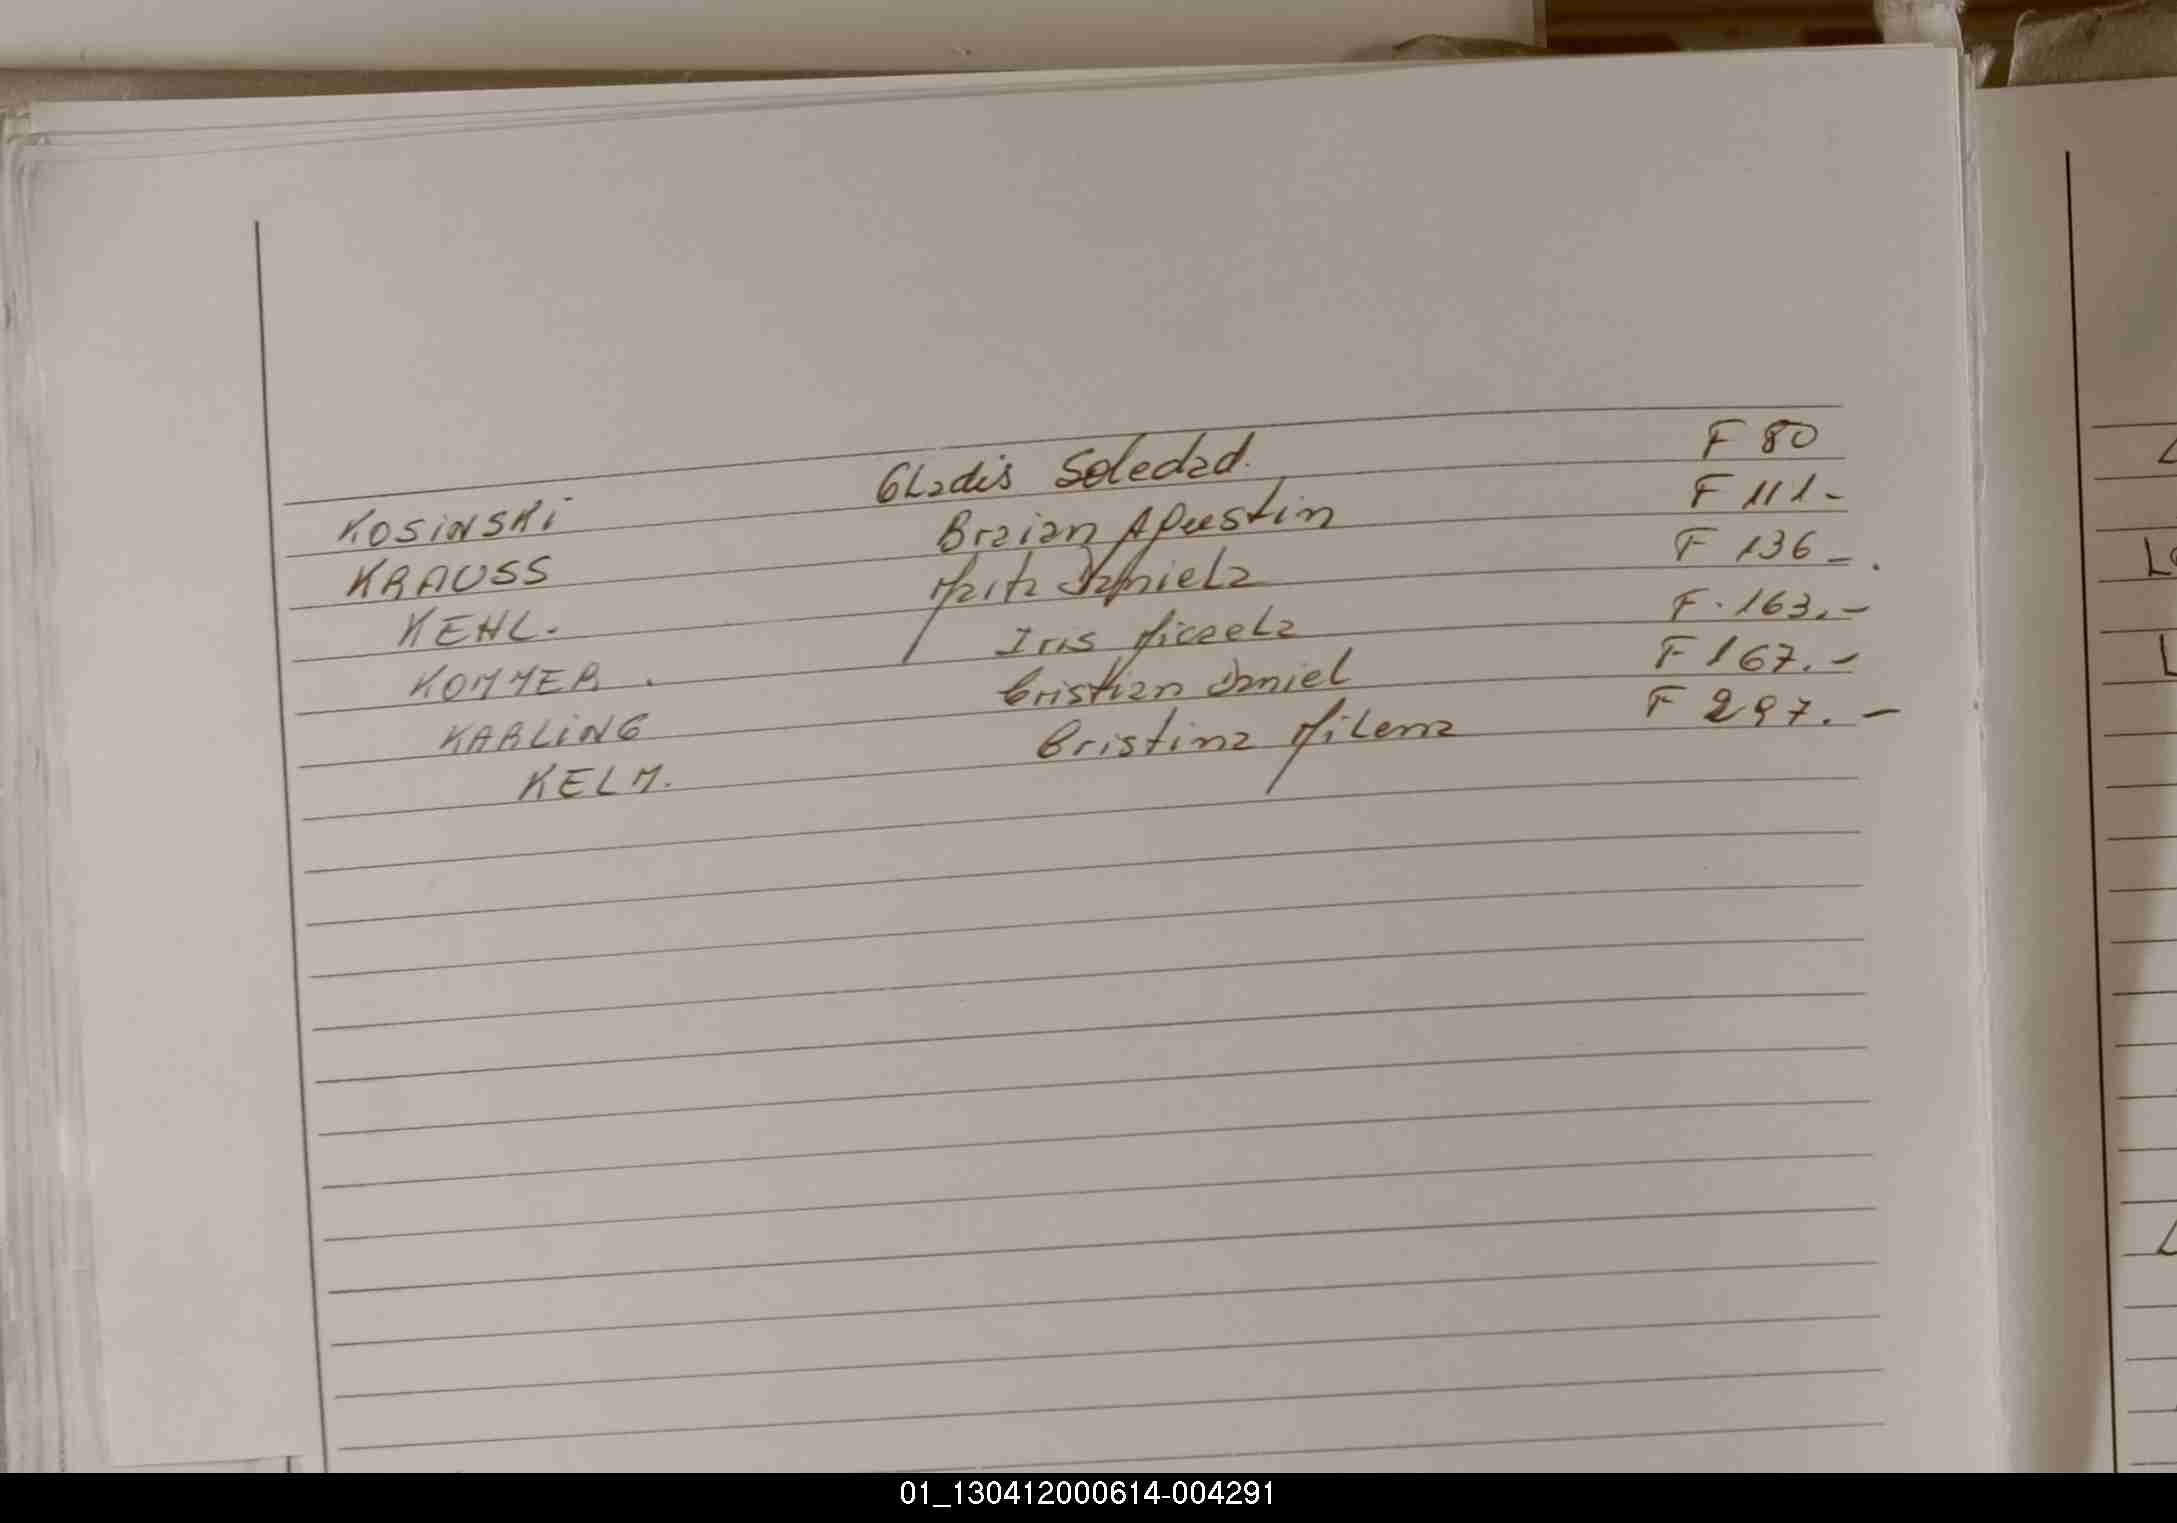 KOSINSKI Gladis Soledad. F 80
KRAUSS Braian Agustin F 111.-
KEHL. Marta Daniela F 136-.
KOMMER. Iris Micaela F. 163.-
KARLING Cristian Daniel F 167.-
KELM. Cristina Milena F 297.-
01_130412000614-004291